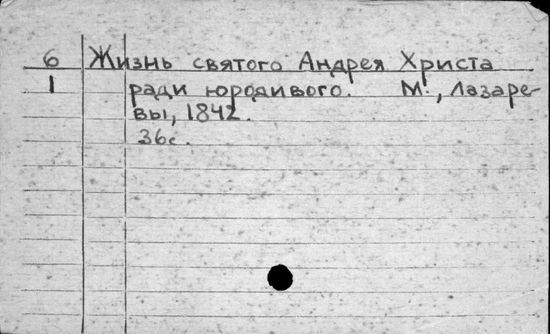 6 Жизнь святого Андрея Христа
1 ради юродивого. М., Лазаре-
вы, 1842.
36с.